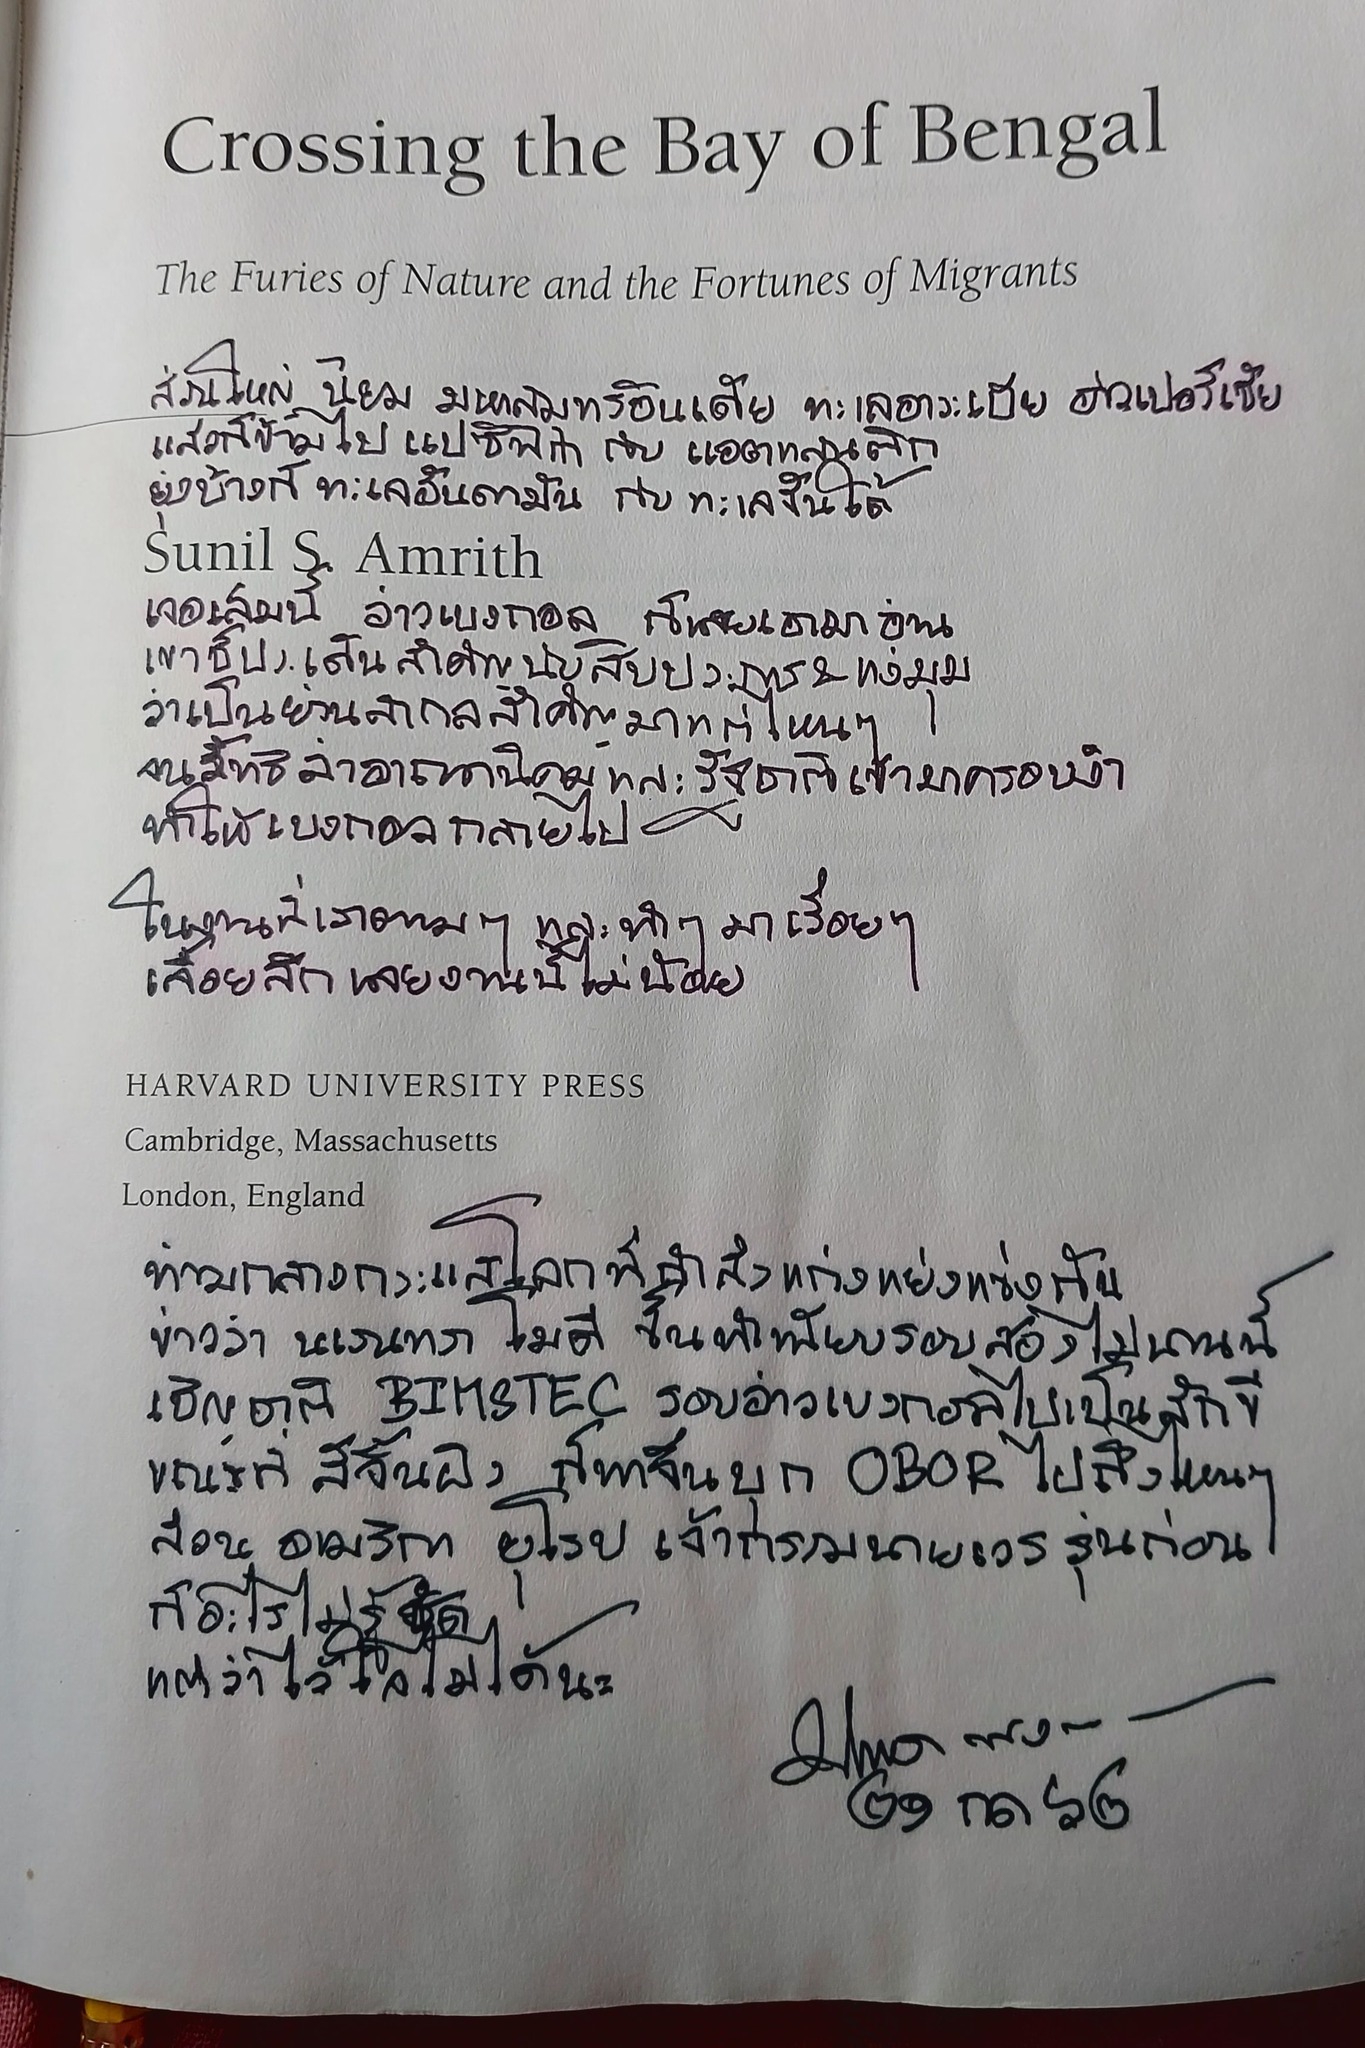 Crossing the Bay of Bengal
The Furies of Nature and the Fortunes of Migrants
ส่วนใหญ่ นิยม มหาสมุทรอินเดีย ทะเลอาระเบีย อ่าวเปอร์เซีย
แล้วก็ข้ามไป แปซิฟิก กับ แอตแลนติก
ยุ่งบ้างก็ ทะเลอันดามัน กับ ทะเลจีนใต้
Sunil S. Amrith
เจอเล่มนี้ อ่าวเบงกอล ก็เลยเอามาอ่าน
เขาชี้ประเด็นสำคัญนับสิบประการ แง่มุม
ว่าเป็นย่านสากลสำคัญมาแต่ไหนๆ
จนลัทธิล่าอาณานิคม และรัฐชาติเข้ามาครอบงำ
ทำให้เบงกอลกลายไป
ในงานที่เราตามๆ และทำๆ มาเรื่อยๆ
เลื้อยลึกเลยงานนี้ไม่น้อย
HARVARD UNIVERSITY PRESS
Cambridge, Massachusetts
London, England
ท่ามกลางกระแสโลกที่กำลังแก่งแย่งแข่งกัน
ข่าวว่า นเรนทรา โมดี ขึ้นทำเนียบรอบสองไม่นานนี้
เชิญชาติ BIMSTEC รอบอ่าวเบงกอลไปเป็นสักขี
ขณะที่ สีจิ้นผิง ก็พาจีนบุก OBOR ไปถึงไหนๆ
ส่วน อเมริกา ยุโรป เจ้ากรรมนายเวร รุ่นก่อน
ก็อะไรไม่รู้ชัด
แต่ว่าไว้ใจไม่ได้นะ
๒๑ กค ๖๒